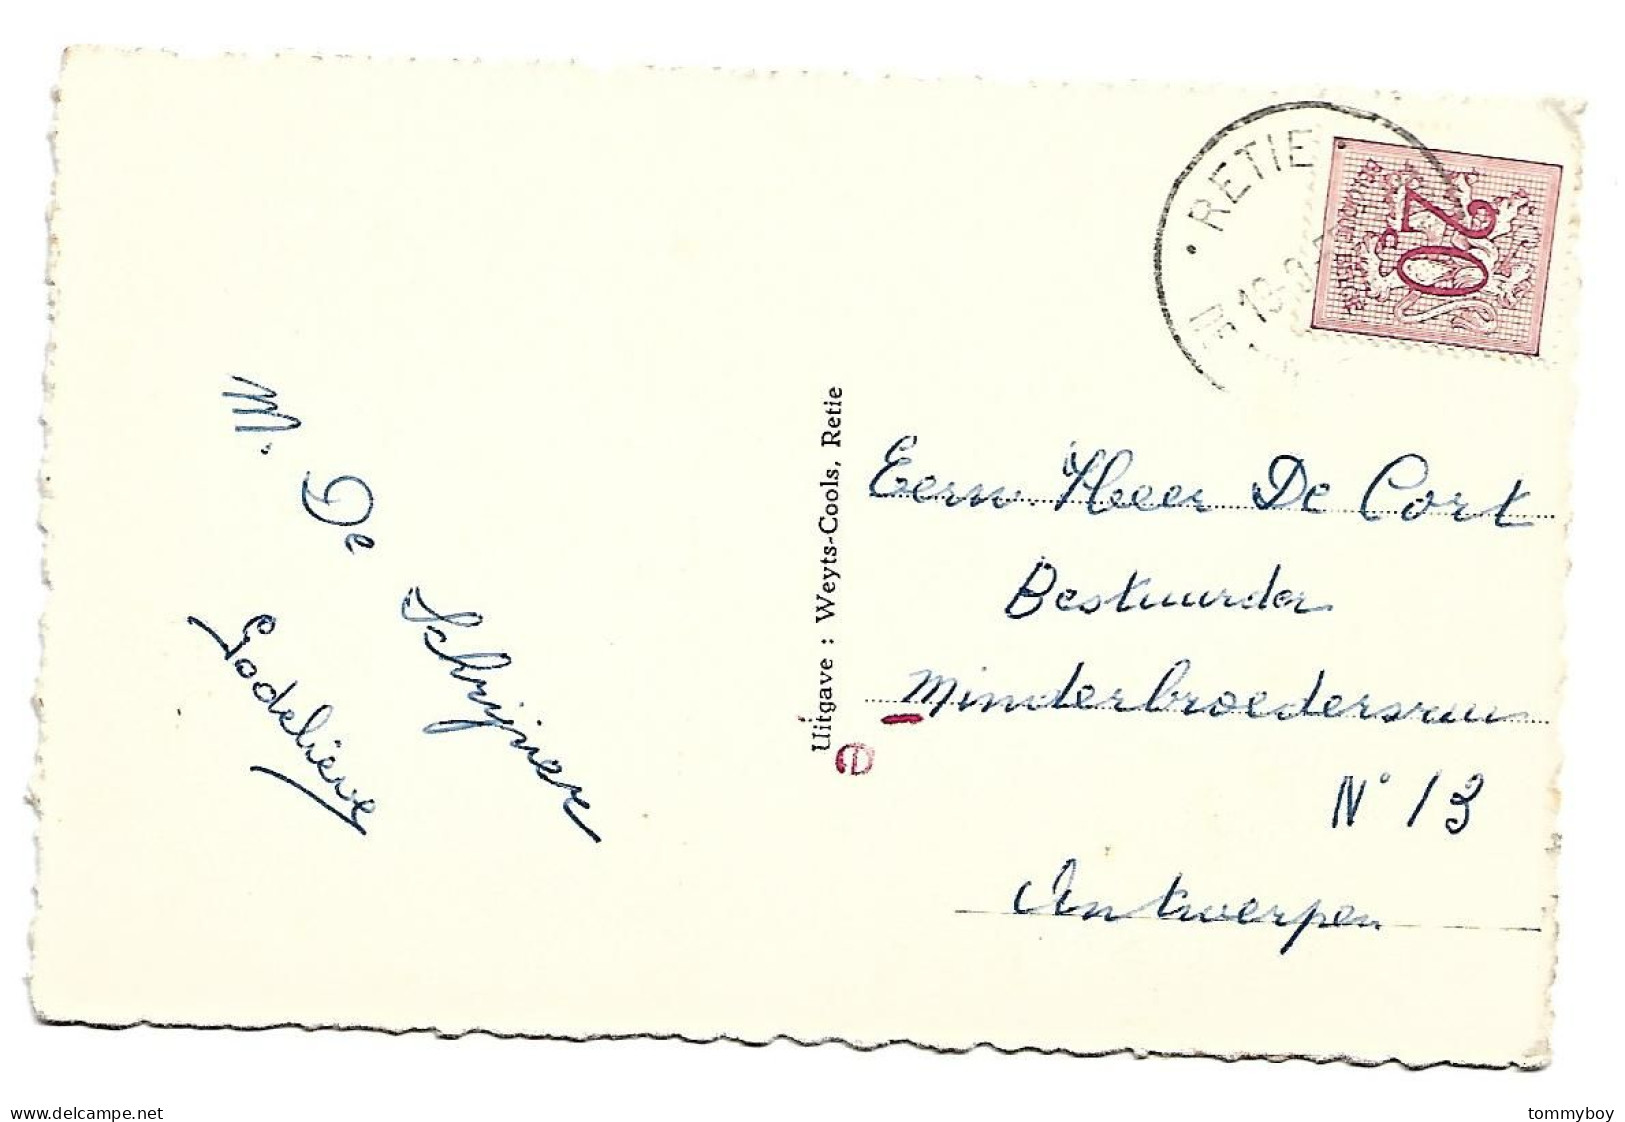 M. De Schrijver
Godelieve
Uitgave : Weyts-Cools, Retie
e
RETIE
20
BELGIQUE BELGIE
Eerw. Heer De Cort
Bestuurder
Minderbroedersrui
N° 13
Antwerpen
www.delcampe.net
tommyboy